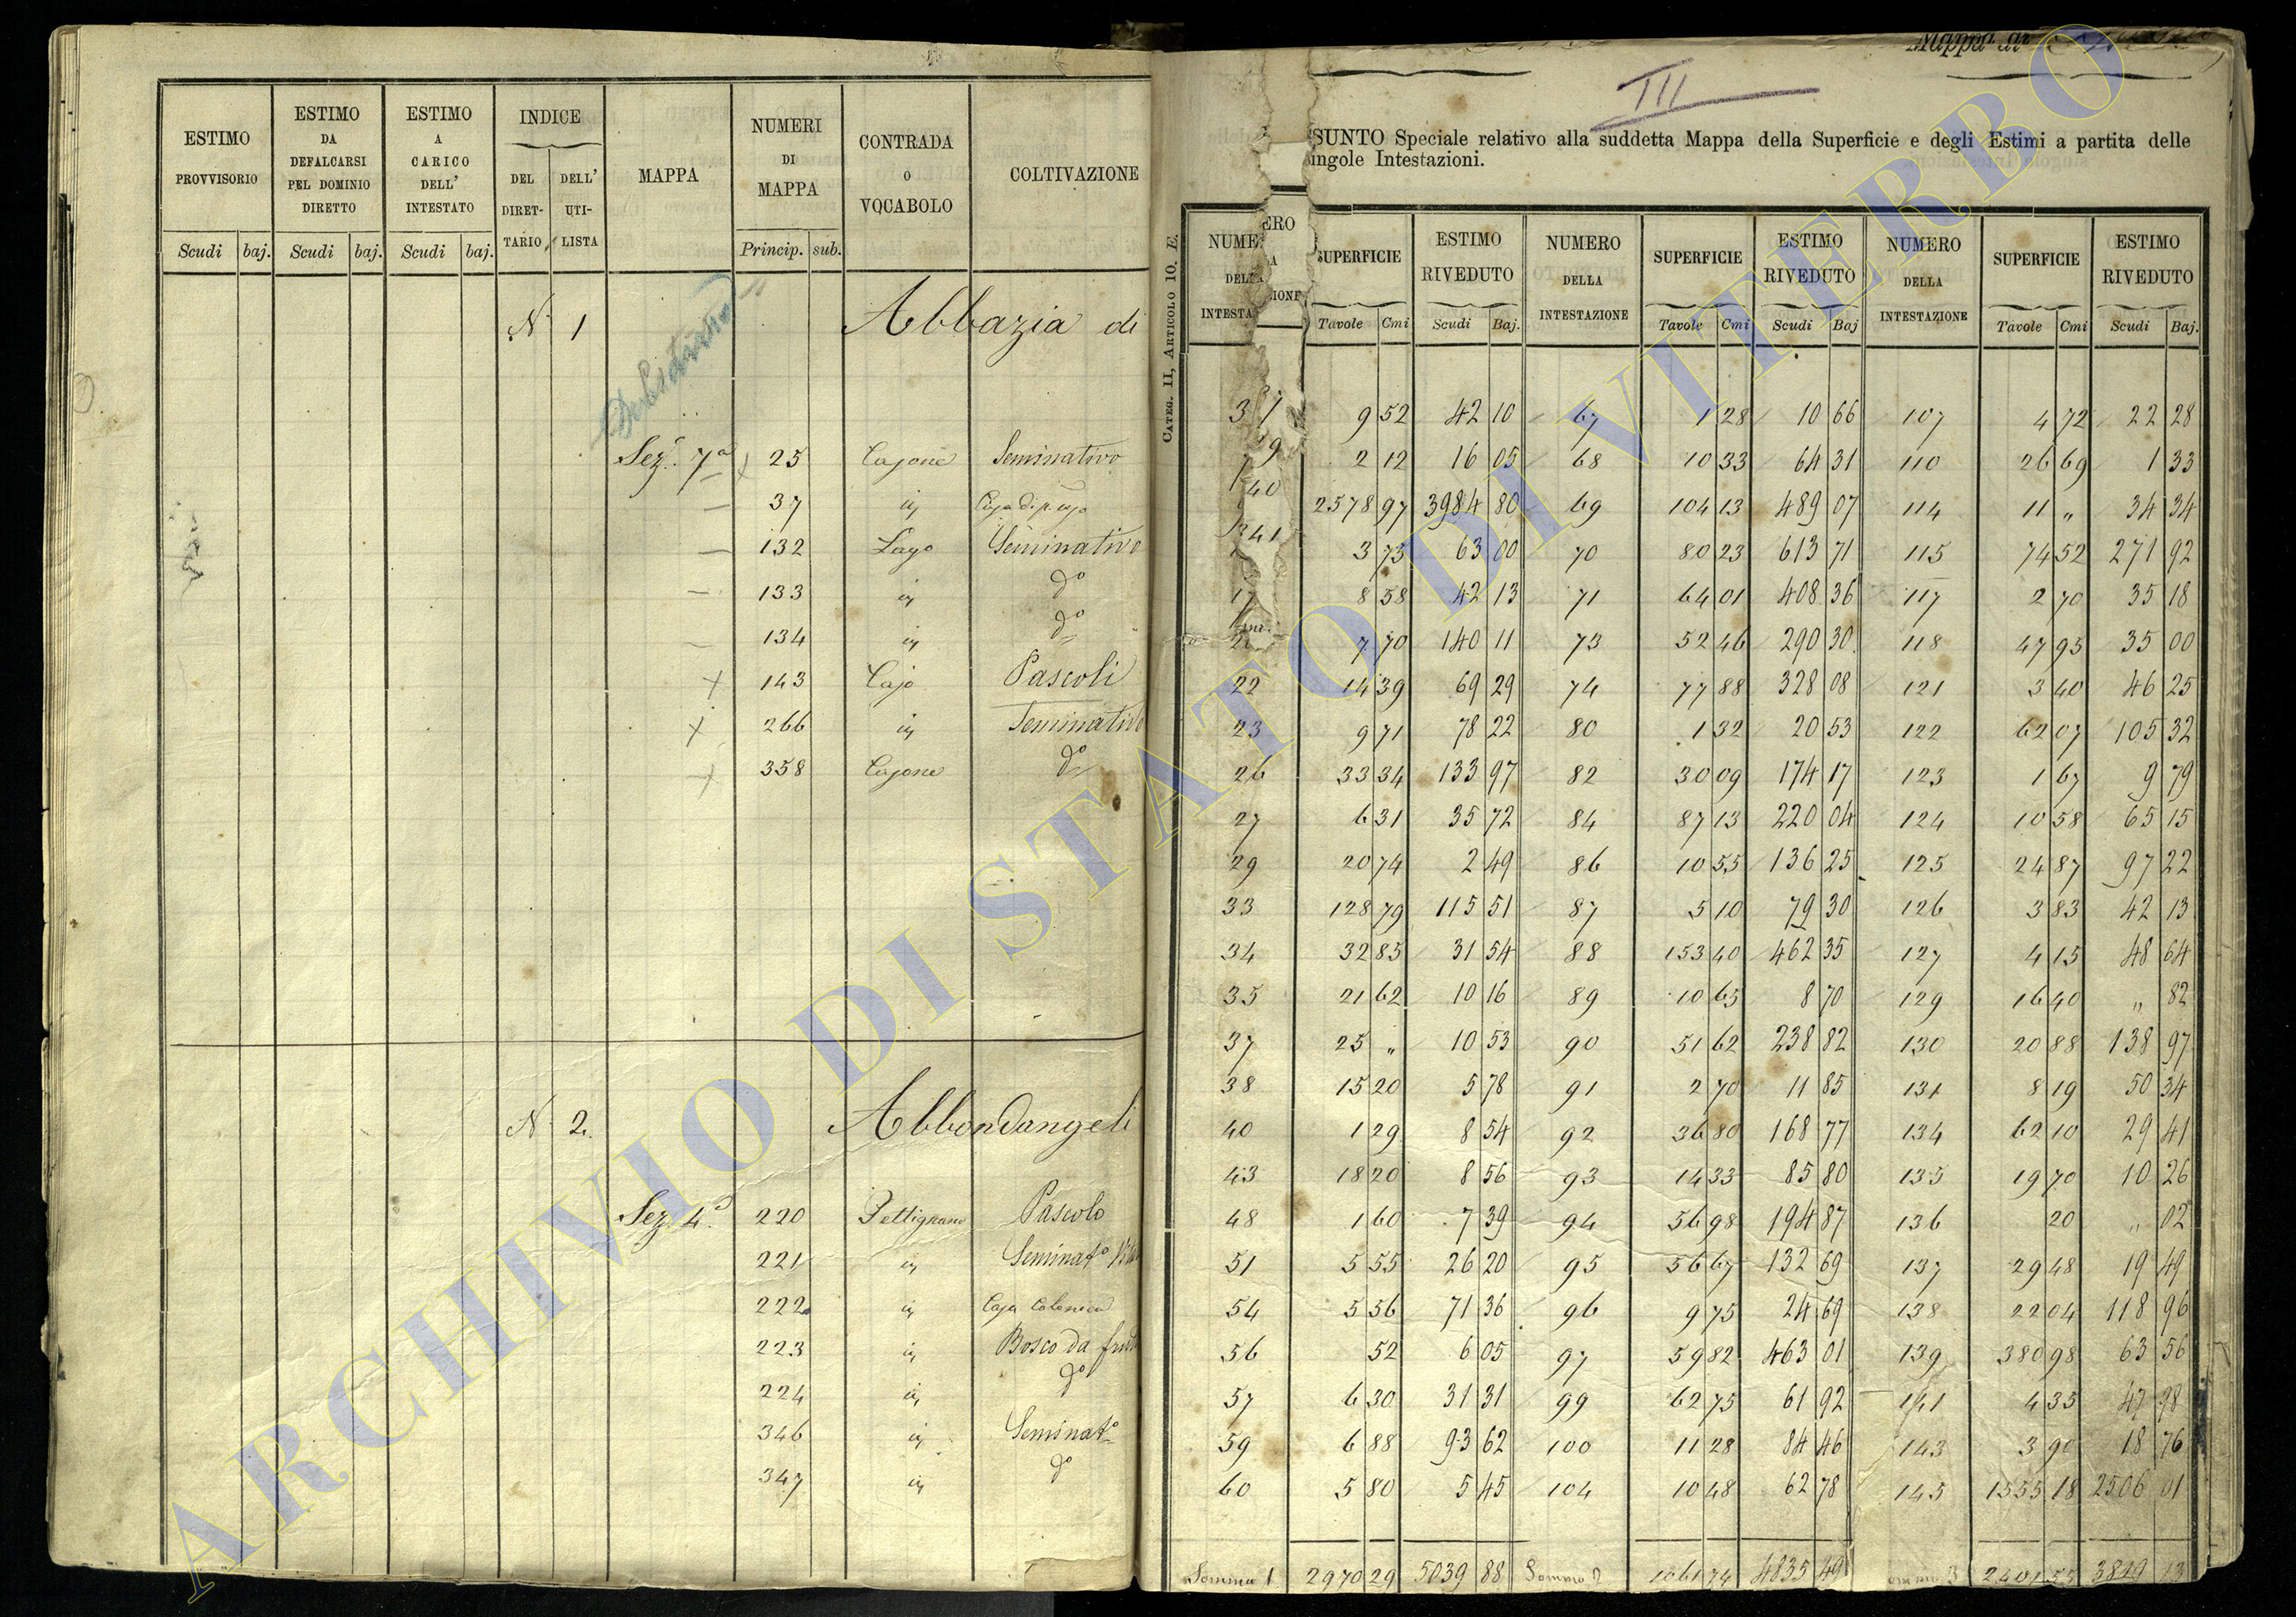 ESTIMO PROVVISORIO | ESTIMO DA DEFALCARSI PEL DOMINIO DIRETTO | ESTIMO A CARICO DELL' INTESTATO | INDICE DEL DIRETTARIO, DELL' UTILISTA | MAPPA | NUMERI DI MAPPA | CONTRADA O VOCABOLO | COLTIVAZIONE
Scudi baj. Scudi baj. Scudi baj. Princip. sub.
N. 1 Abbazia di
Sez. 7a 25 Cajone Seminativo
37 in
132 Lago Seminativo
133 in do
134 in do
143 Cajo Pascoli
266 in Seminativo
358 Cajone do
N. 2. Abbondangeli
Sez. 4a 220 Pettignano Pascolo
221 in Seminato
222 in Casa Colonica
223 in Bosco da
224 in do
346 in Seminato
347 in do
Mappa di
III
SUNTO Speciale relativo alla suddetta Mappa della Superficie e degli Estimi a partita delle
ingole Intestazioni.
CATEG. II, ARTICOLO 10. E.
SUPERFICIE | ESTIMO RIVEDUTO | NUMERO DELLA INTESTAZIONE | SUPERFICIE | ESTIMO RIVEDUTO | NUMERO DELLA INTESTAZIONE | SUPERFICIE | ESTIMO RIVEDUTO
Tavole Cmi Scudi Baj. Tavole Cmi Scudi Baj Tavole Cmi Scudi Baj.
9 52 42 10 67 1 28 10 66 107 4 72 22 28
2 12 16 05 68 10 33 64 31 110 26 69 1 33
2578 97 3984 80 69 104 13 489 07 114 11 „ 34 34
3 73 63 00 70 80 23 613 71 115 74 52 271 92
17 8 58 42 13 71 64 01 408 36 117 2 70 35 18
7 70 140 11 73 52 46 290 30 118 47 95 35 00
22 14 39 69 29 74 77 88 328 08 121 3 40 46 25
23 9 71 78 22 80 1 32 20 53 122 62 07 105 32
26 33 34 133 97 82 30 09 174 17 123 1 67 9 79
27 6 31 35 72 84 87 13 220 04 124 10 58 65 15
29 20 74 2 49 86 10 55 136 25 125 24 87 97 22
33 128 79 115 51 87 5 10 79 30 126 3 83 42 13
34 32 85 31 54 88 153 40 462 35 127 4 15 48 64
35 21 62 10 16 89 10 65 8 70 129 16 40 „ 82
37 25 „ 10 53 90 51 62 238 82 130 20 88 138 97
38 15 20 5 78 91 2 70 11 85 131 8 19 50 34
40 1 29 8 54 92 36 80 168 77 134 62 10 29 41
43 18 20 8 56 93 14 33 85 80 135 19 70 10 26
48 1 60 7 39 94 56 98 194 87 136 20 „ 02
51 5 55 26 20 95 56 67 132 69 137 29 48 19 49
54 5 56 71 36 96 9 75 24 69 138 22 04 118 96
56 52 6 05 97 59 82 463 01 139 380 98 63 56
57 6 30 31 31 99 62 75 61 92 141 4 35 47 98
59 6 88 93 62 100 11 28 84 46 143 3 90 18 76
60 5 80 5 45 104 10 48 62 78 145 1555 18 2506 01
Somma 1 2970 29 5039 88 Somma 2 1061 74 4835 49 3 2401 55 3819 13
ARCHIVIO DI STATO DI VITERBO